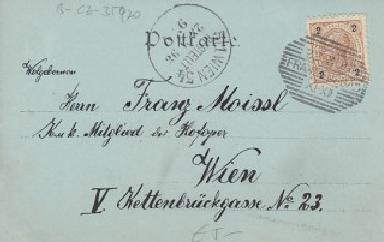 B-CZ-35920
Postkarte.
WIEN
2
2
2
2
FRA
Wolgeboren
Herrn Franz Moissl
K. u. k. Mitglied der Hofoper
Wien
V. Kettenbrückgasse No. 23.